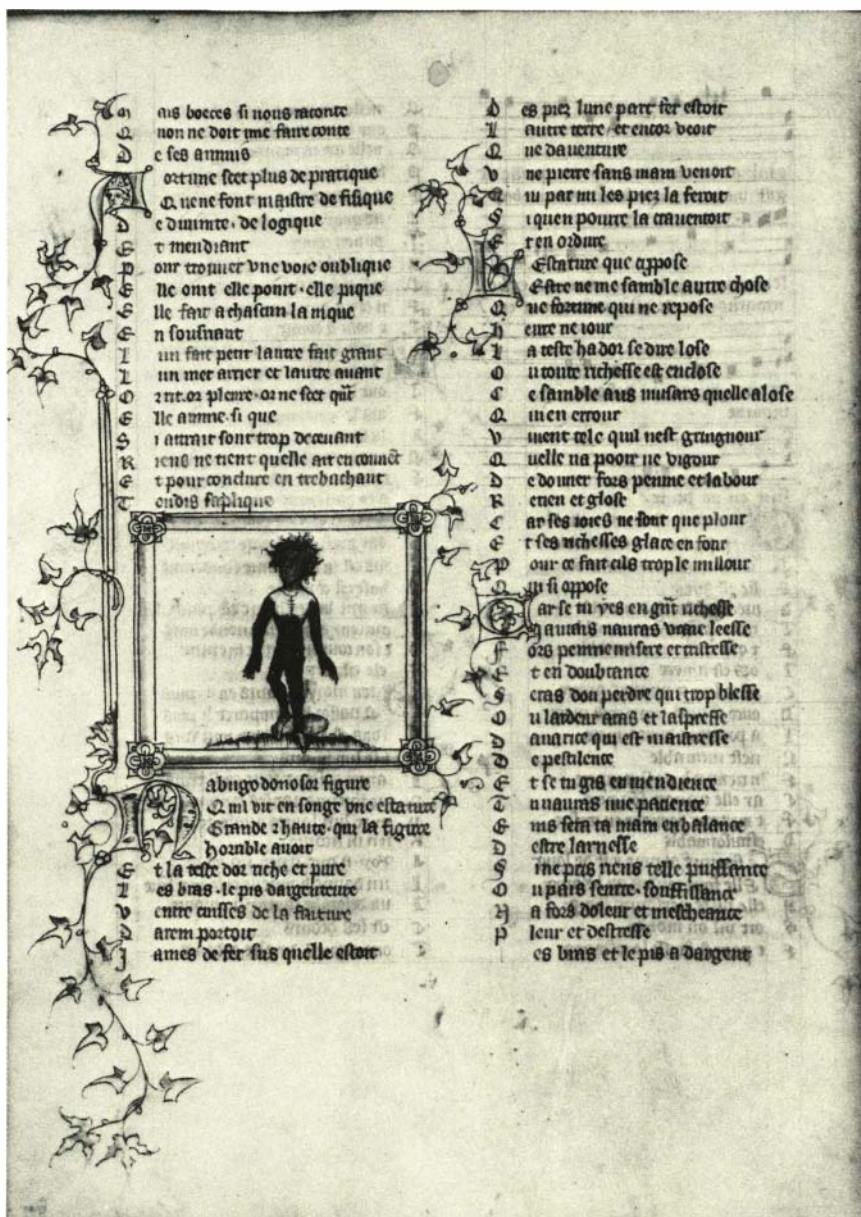 M ais boeces si nous raconte
Q uon ne doit mie faire conte
D e ses annuis
F ortune scet plus de pratique
Q ue ne font maistre de fisique
D e diuinite . de logique
E t mendiant
P our trouuer vne voie oublique
E lle oint elle point . elle pique
E lle fait a chascun la nique
E n sousriant
L un fait petit lautre fait grant
L un met arrier et lautre auant
O r rit . or pleure . or ne scet qnt
E lle aimme . si que
S i attrait sont trop deceuant
R iens ne tient quelle ait en conuet
E t pour conclure en trebuchant
T oudis saplique
N abugodonosor figure
Q uil vit en songe vne estature
Grande 2 haute . qui la figure
Horrible auoit
E t la teste dor riche et pure
L es bras . le pis dargenteure
V entre cuisses de la faiture
D arem portoit
J ames de fer sus quelle estoit
D es piez lune part fer estoit
L autre terre / et encor veoit
Q ue dauenture
V ne pierre sans main venoit
Q ui par mi les piez la feroit
S i quen pourre la crauentoit
E t en ordure
L Estature que appose
Estre ne me samble autre chose
Q ue fortune qui ne repose
H eure ne iour
L a teste ha dor se dire lose
O u toute richesse est enclose
C e samble aus musars quelle alose
Q ui en errour
V iuent tele quil nest gringnour
Q uelle na pooir ne vigour
D e donner fors peinne et labour
R etien et glose
C ar ses ioies ne sont que plour
E t ses richesses glace en four
P our ce fait cils trop le millour
Q ui si oppose
C ar se tu yes en gnt richesse
J amais nauras vraie leesse
F ors peinne misere et tristesse
E t en doubtance
S eras dou perdre qui trop blesse
O u lardeur aras et laspresse
D auarice qui est maistresse
D e pestilence
E t se tu gis en mendience
T u nauras nue pacience
E ins sera ta main en balance
D estre larnesse
S ine pris riens telle puissance
O u pais sentre . souffissance
N a fors doleur et mescheance
P leur et destresse
es bras et le pis a dargent